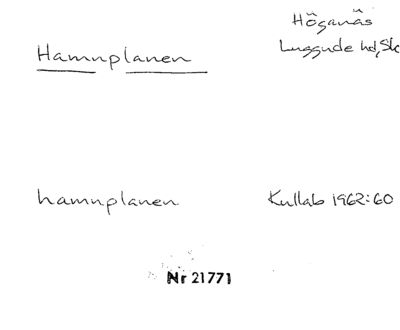 Höganäs
Hamnplanen
Luggude hd, Sk
hamnplanen Kullab 1962:60
Nr 21771